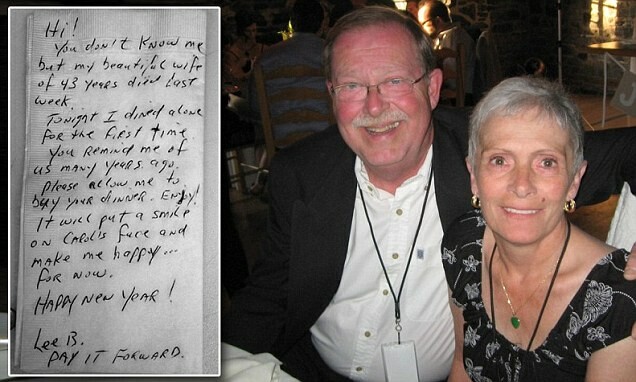 Hi!
You don't know me
but my beautiful wife
of 43 years died last
week
Tonight I dined alone
for the first time
You remind me of
us many years ago.
please allow me to
buy your dinner. Enjoy!
It will put a smile
on Carol's face and
make me happy...
for now.
HAPPY NEW YEAR!
Lee B.
PAY IT FORWARD.